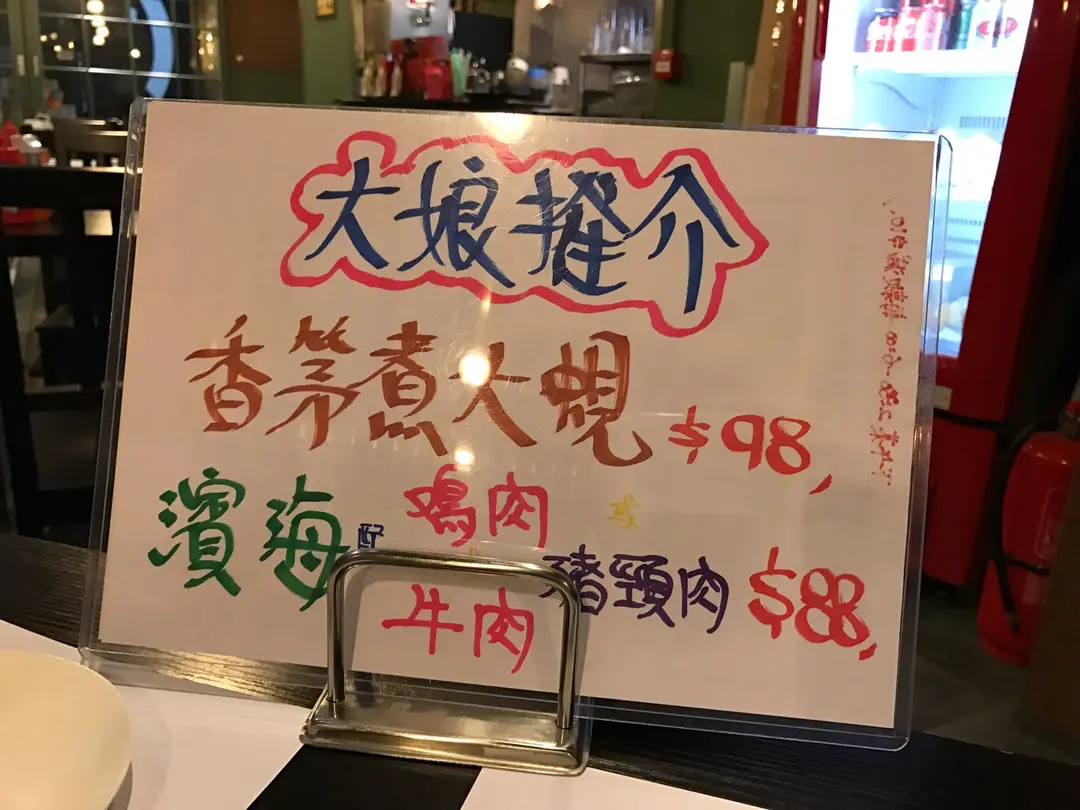 大娘推介
香茅煮大蜆 $98,
濱海配 鷄肉 或 豬頸肉 $88,
牛肉